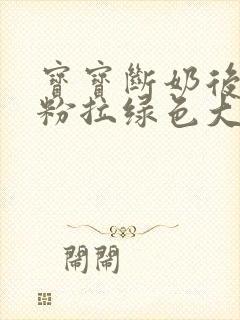 寶寶斷奶後
粉拉綠色大
鬧鬧